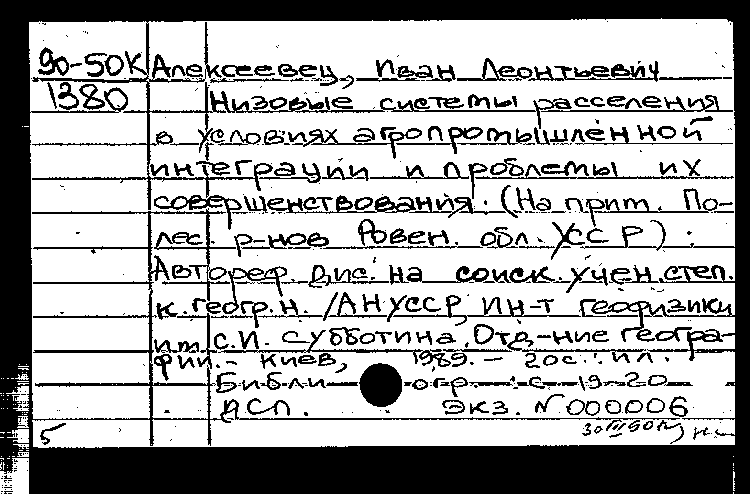 90-50К Алексеевец, Иван Леонтьевич
1380 Низовые системы расселения
в условиях агропромышленной
интеграции и проблемы их
совершенствования: (На прим. По-
лес. р-нов Ровен. обл. УССР):
Автореф. дис. на соиск. учен. степ.
к. геогр. н. / АН УССР, Ин-т геофизики
им. С.И. Субботина, Отд-ние геогра-
фии. - Киев, 1989. - 20с.: ил.
Библиогр.: с. 19-20
ДСП. Экз. №000006
5 30 III 90